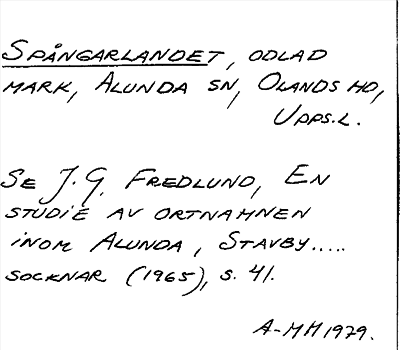 SPÅNGARLANDET, ODLAD
MARK, ALUNDA SN, OLANDS HD,
UPPS.L.
SE J.G. FREDLUND, EN
STUDIE AV ORTNAMNEN
INOM ALUNDA, STAVBY.....
SOCKNAR (1965), S. 41.
A-MH 1979.